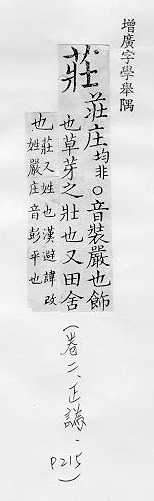 增廣字學舉隅
莊
莊庄均非○音裝嚴也飾
也草芽之壯也又田舍
也莊又姓也漢避諱改
姓嚴庄音彭平也
(卷二、正譌、P215)